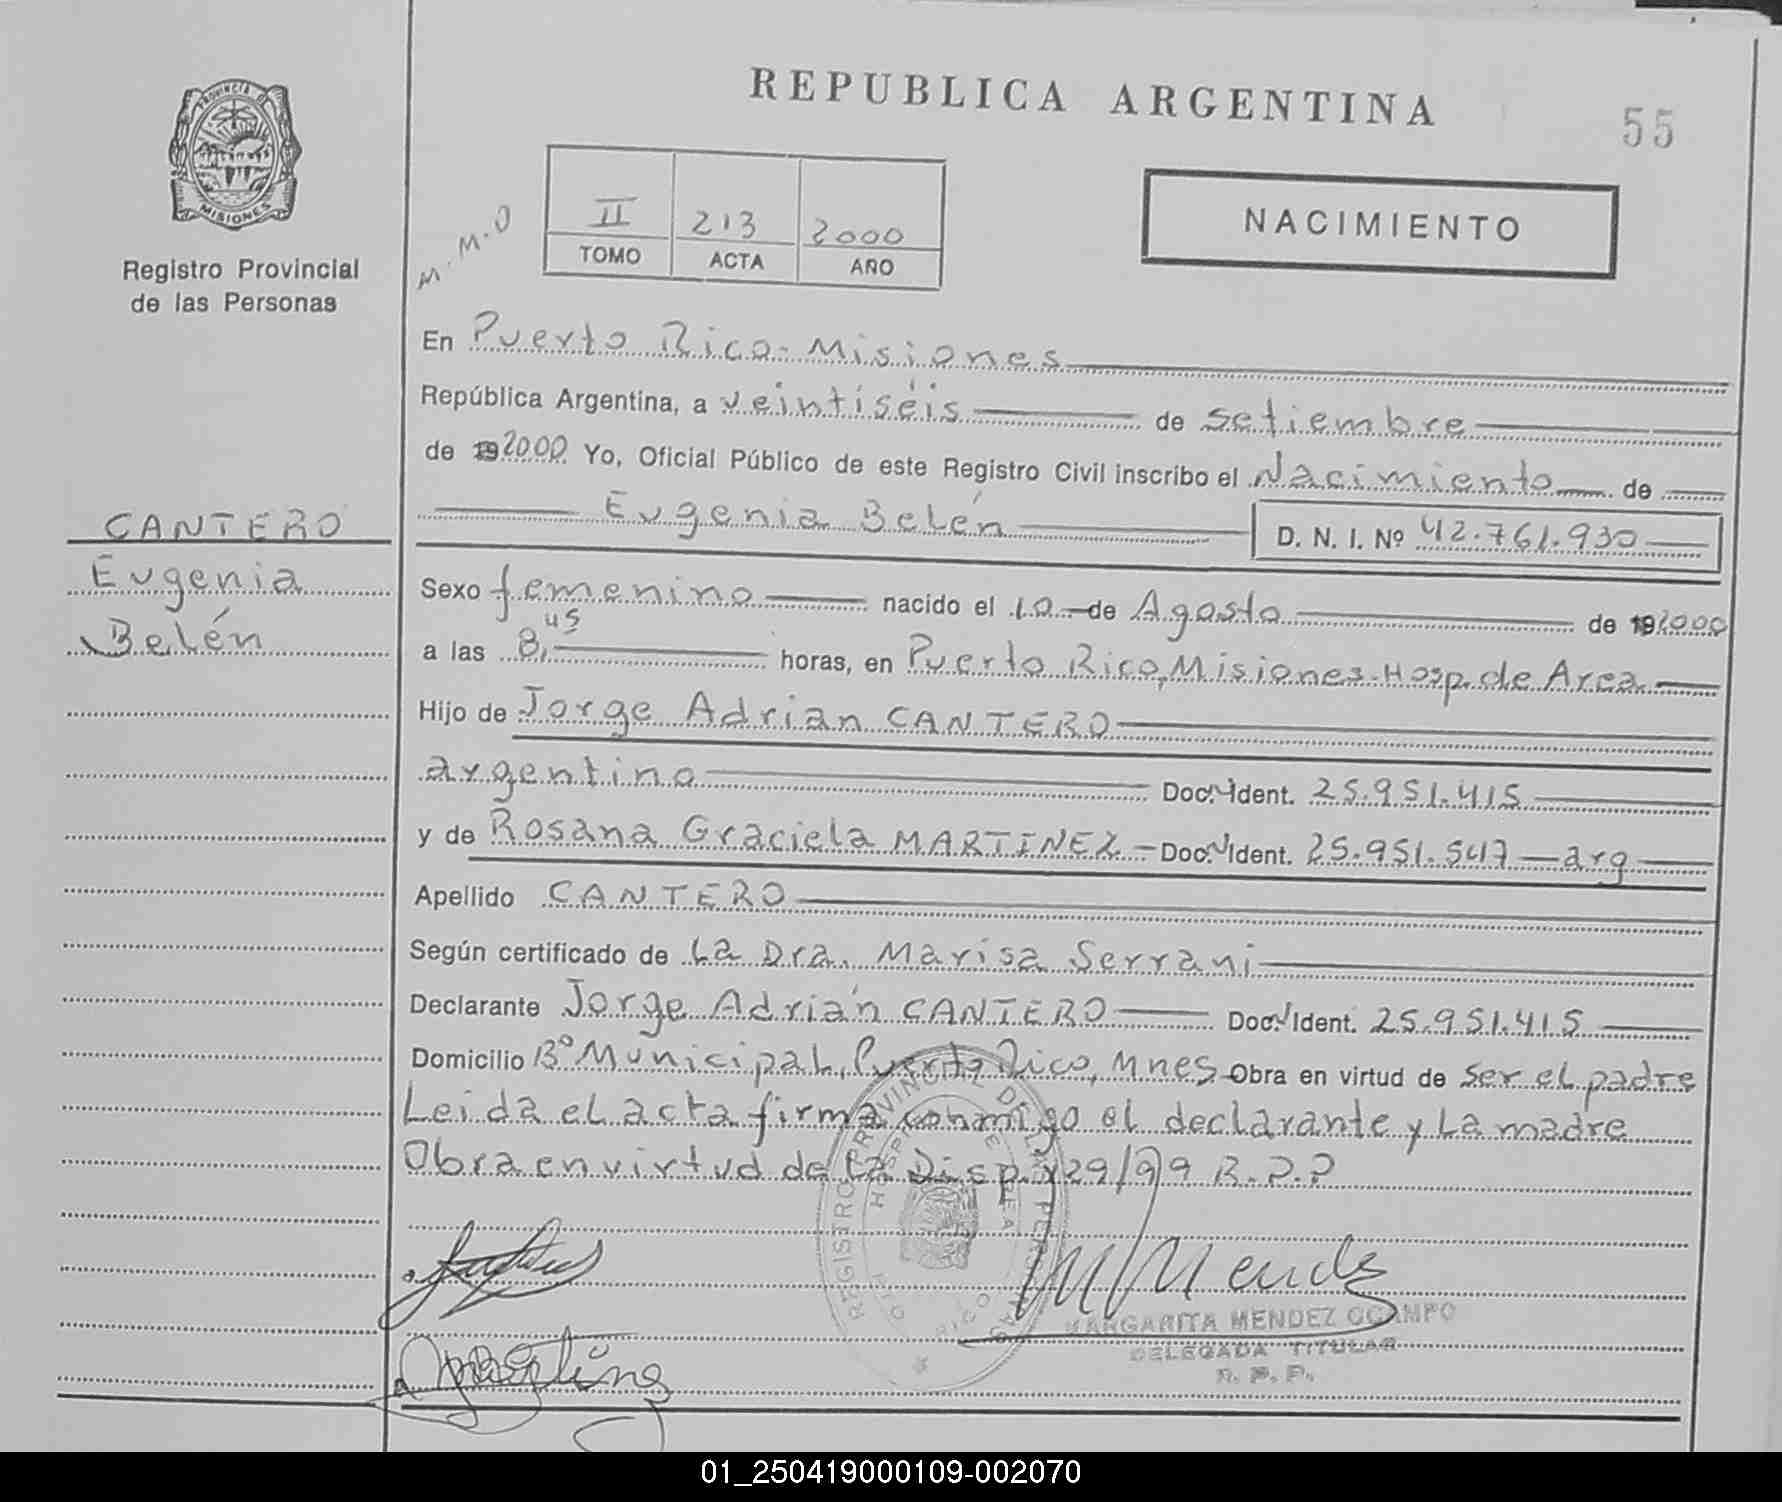 REPUBLICA ARGENTINA
55
PROVINCIA DE
MISIONES
Registro Provincial
de las Personas
M.M.O
II 213 2000
TOMO ACTA AÑO
NACIMIENTO
En Puerto Rico-Misiones
República Argentina, a veintiséis de setiembre
de 192000 Yo, Oficial Público de este Registro Civil inscribo el Nacimiento de
Eugenia Belén D. N. I. Nº 42.761.930
CANTERO
Eugenia
Belén
Sexo femenino nacido el 10 de Agosto de 192000
a las 8,45 horas, en Puerto Rico, Misiones-Hosp. de Area
Hijo de Jorge Adrian CANTERO
argentino Doc. Ident. 25.951.415
y de Rosana Graciela MARTINEZ - Doc. Ident. 25.951.547 - arg
Apellido CANTERO
Según certificado de La Dra. Marisa Serrani
Declarante Jorge Adrián CANTERO Doc. Ident. 25.951.415
Domicilio Bº Municipal, Puerto Rico, Mnes Obra en virtud de ser el padre
Leida el acta firma conmigo el declarante y La madre
Obra en virtud de La Disp. 129/99 R.P.P
REGISTRO PROVINCIAL DE LAS PERSONAS
M Mendez
MARGARITA MENDEZ OCAMPO
DELEGADA TITULAR
R. P. P.
01_250419000109-002070